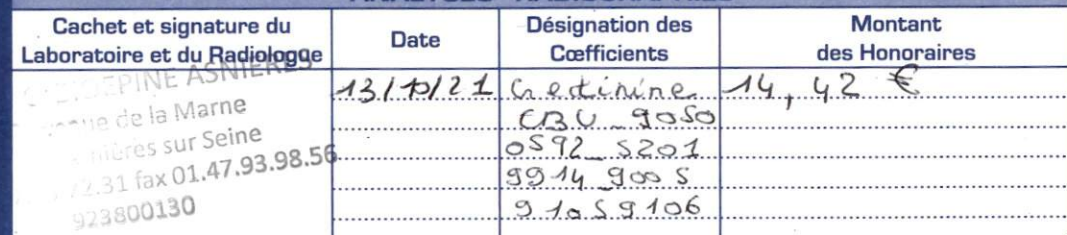 Cachet et signature du
Laboratoire et du Radiologue
Date
Désignation des
Cœfficients
Montant
des Honoraires
ASNIERES
de la Marne
sur Seine
fax 01.47.93.98.56
923800130
13/10/21
Creatinine
14,42 €
ECBU_9050
0592_5201
9914_9005
91059106